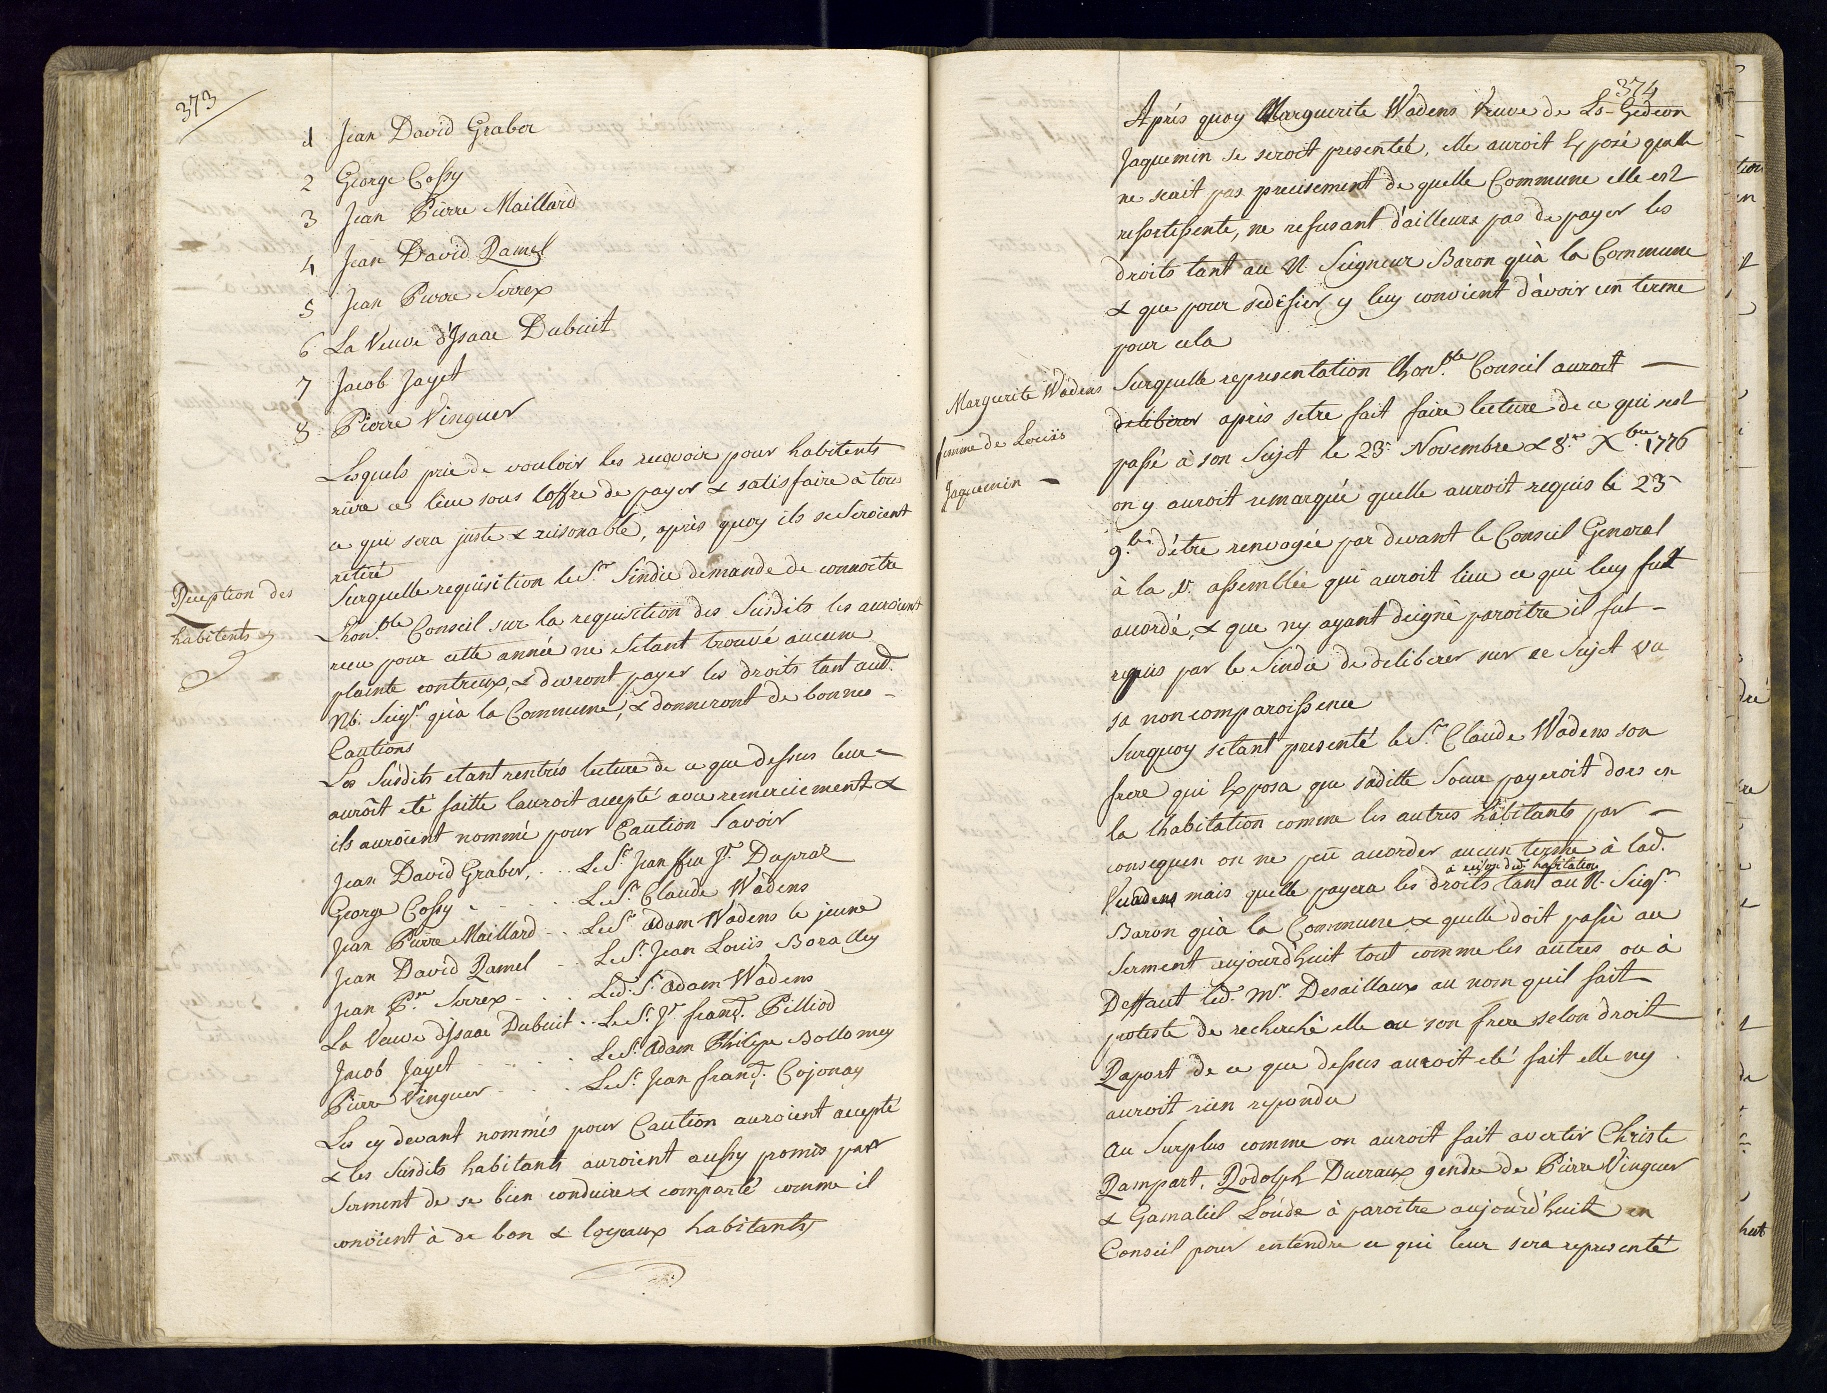 373
1 Jean David Graber
2 George Cossy
3 Jean Pierre Maillard
4 Jean David Ramel
5 Jean Pierre Serrex
6 La Veuve d'Isaac Dubuit
7 Jacob Jayet
8 Pierre Vinguer
Lesquels prie de vouloir les recevoir pour habitents
rière ce lieu sous l'offre de payer & satisfaire à tou
ce qui sera juste & raisonable, après quoy ils se seroient
retiré
Surquelle requisition le Sr. Sindic demande de connoitre
Reception des
habitents
L'hon.ble Conseil sur la requisition des Susdits les auroient
recu pour cette année ne s'etant trouvé aucune
plainte contreux, & devront payer les droits tant aud.
Nb. Seigr. qu'à la Commune, & donneront de bonnes -
Cautions
Les Susdits etant rentrés lecture de ce que dessus leur -
auroit eté faitte lauroit accepté avec remerciement &
ils auroient nommé pour Caution Savoir
Jean David Graber, . . . Le Sr. Jean ffeu Jn. Dapraz
George Cossy . . . . Le Sr. Claude Wadens
Jean Pierre Maillard . . Le Sr. Adam Wadens le jeune
Jean David Ramel . . Le Sr. Jean Louis Boralley
Jean Pre. Serrex . . . Led. Sr. Adam Wadens
La Veuve d'Isaac Dubuit . . Le Sr. Jn. Franç. Pilliod
Jacob Jayet . . . . Le Sr. Adam Philipe Bollomey
Pierre Vinguer . . . . Le Sr. Jean Franç. Cojonay
Les cy devant nommés pour Caution auroient accepté
& les Susdits habitants auroient aussy promis par
Serment de se bien conduire & comporté comme il
convient à de bon & loyaux habitants
374
Après quoy Marguerite Wadens Veuve de Ls- Gedeon
Jaquemin se seroit presenteé, elle auroit Exposé quelle
ne scait pas precisement de quelle Commune elle est
ressortissente, ne refusant d'ailleurs pas de payer les
droits tant au N. Seigneur Baron qu'à la Commune
& que pour y luy convient d'avoir un terme
pour cela
Marguerite Wadens
femme de Louis
Jaquemin -
Surquelle representation l'hon.ble Conseil auroit -
deliberer après setre fait faire lecture de ce qui s'est
passé à son Sujet le 23 Novembre & 8.e X.bre 1776
on y auroit remarqué quelle auroit requis le 23
9.bre d'être renvoyée par devant le Conseil General
à la 1e. assemblée qui auroit lieu ce qui luy fut
accordé, & que ny ayant deigné paroitre il fut -
requis par le Sindic de deliberer sur ce Sujet vu
sa non comparoissence
Surquoy setant presenté le Sr. Claude Wadens son
frere qui Exposa que saditte Soeur payeroit dors en
la l'habitation comme les autres habitants par -
consequen on ne peu accorder aucun terme à lad.
Vuadens mais quelle payera les droits tant au N. Seigr.
à raison de l'habitation
Baron qu'à la Commune & quelle doit passé au
Serment aujourd'huit tout comme les autres ou à
Deffaut led. Mr. Desaillaux au nom quil fait
proteste de recherché elle ou son frere selon droit
Raport de ce que dessus auroit eté fait elle ny
auroit rien repondu
Au Surplus comme on auroit fait avertir Christe
Rampart. Rodolph Ducraux gendre de Pierre Vinguer
& Gamaliel Loude à paroitre aujourd'huit en
Conseil pour entendre ce qui leur sera representé